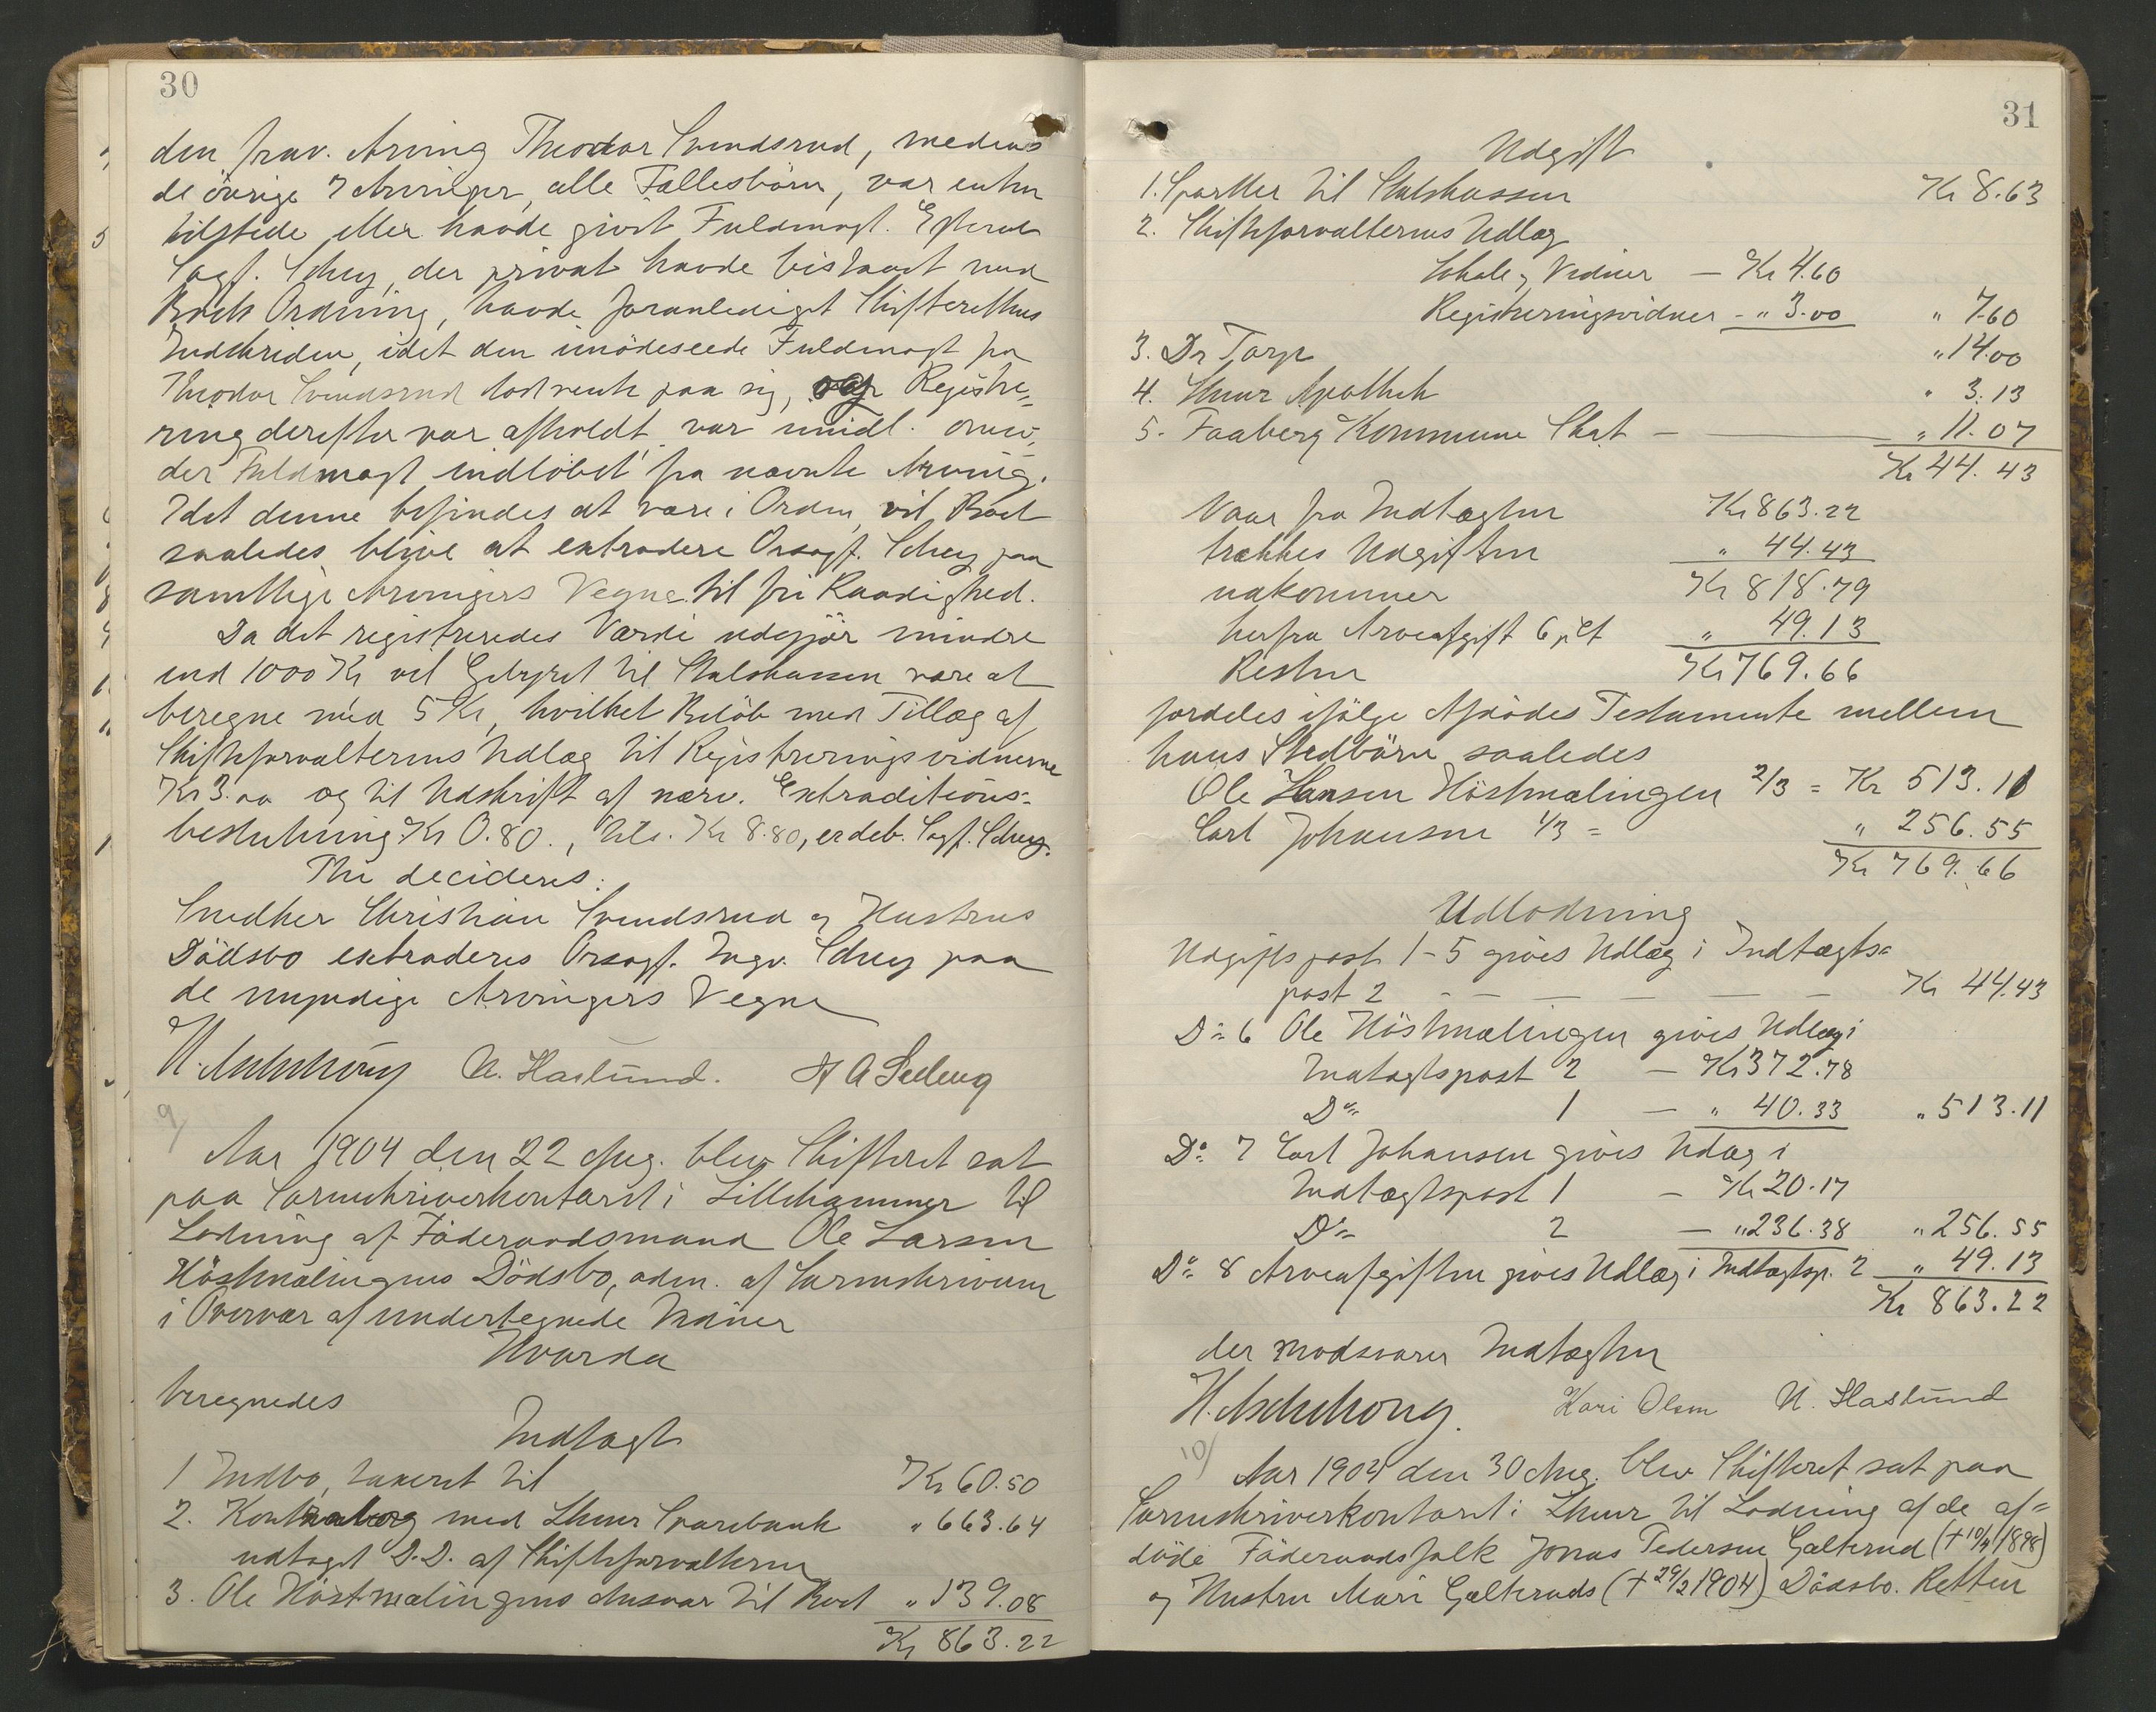 30
den frav. Arving Theodor Svendsrud, medens
de övrige 7 Arvinger, alle Fællesbörn, var enten
tilstede eller havde givet Fuldmagt. Efterat
Sagf. Schey, der privat havde bistaaet med
Boets Ordning, havde foranlediget Skifterettens
Indskriden, idet den imödeseede Fuldmagt fra
Theodor Svendsrud lod vente paa sig, og Registre=
ring derefter var afholdt var imidl. om=
der Fuldmagt indlöbet fra nævnte Arving.
Idet denne befindes at være i Orden, vil Boet
saaledes blive at extradere Orsagf. Schey paa
samtlige Arvingers Vegne til fri Raadighed.
Da det registreredes Værdi udgjör mindre
end 1000 Kr vil Gebyret til Statskassen være at
beregne med 5 Kr, hvilket Belöb med Tillæg af
Skifteforvalterens Udlæg til Registreringsvidnerne
Kr 3.00 og til Udskrift af nærv. Extraditions=
beslutning Kr 0.80., tils. Kr 8.80, er deb. Sagf. Schey.
Thi decideres:
Snedker Christian Svendsrud og Hustrus
Dödsbo extraderes Orsagf. Ingv. Schey paa
de myndige Arvingers Vegne
N. Haslund.
9/
Aar 1904 den 22 Aug. blev Skifteret sat
paa Sorenskriverkontoret i Lillehammer til
Lodning af Föderaadsmand Ole Larsen
Höstmælingens Dödsbo, adm. af Sorenskriveren
i Overvær af undertegnede Vidner
Hvorda
beregnedes
Indtægt
1 Indbo, taxeret til Kr 60.50
2. Kontrabog med Lhmr Sparebank " 663.64
udtaget D.D. af Skifteforvalteren
3. Ole Höstmælingens Ansvar til Boet " 139.08
Kr 863.22
31
Udgift
1. Sportler til Statskassen Kr 8.63
2. Skifteforvalterens Udlæg
Lokale, Vidner — Kr 4.60
Registreringsvidner - " 3.00 " 7.60
3. Dr Torp " 14.00
4. Lhmr Apothek " 3.13
5. Faaberg Kommune Skat — " 11.07
Kr 44.43
Naar fra Indtægten Kr 863.22
trækkes Udgiften " 44.43
udkommer Kr 818.79
herfra Arveafgift 6 pCt " 49.13
Resten Kr 769.66
fordeles ifölge Afdödes Testamente mellem
hans Stedbörn saaledes
Ole Hansen Höstmælingen 2/3 = Kr 513.11
Carl Johansen 1/3 = " 256.55
Kr 769.66
Udlodning
Udgiftspost 1-5 gives Udlæg i Indtægts=
post 2 - — — — — — Kr 44.43
Do 6 Ole Höstmælingen gives Udlæg i
Indtægtspost 2 — Kr 372.78
Do 1 — " 40.33 " 513.11
Do 7 Carl Johansen gives Udlæg i
Indtægtspost 1 — Kr 20.17
Do 2 — " 236.38 " 256.55
Do 8 Arveafgiften gives Udlæg i Indtægtsp. 2 " 49.13
Kr 863.22
der modsvarer Indtægten
Kari Olsen N. Haslund
10/
Aar 1904 den 30 Aug. blev Skifteret sat paa
Sorenskriverkontoret i Lhmr til Lodning af de af=
döde Föderaadsfolk Jonas Pedersen Galterud († 10/4 1898)
og Hustru Mari Galteruds († 29/2 1904) Dödsbo. Retten